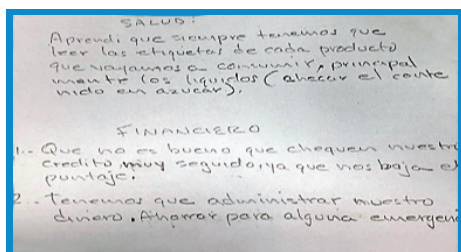 SALUD:
Aprendi que siempre tenemos que
leer las etiquetas de cada producto
que vayamos a consumir, principal
mente los liquidos (checar el conte
nido en azucar).
FINANCIERO
1.. Que no es bueno que chequen nuestro
credito muy seguido, ya que nos baja el
puntaje.
2.. Tenemos que administrar nuestro
dinero. Ahorrar para alguna emergenci